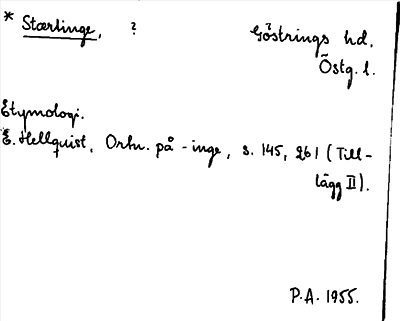 * Stærlinge, ? Göstrings hd.
Östg. l.
Etymologi.
E. Hellquist, Ortn. på -inge, s. 145, 261 (Till-
lägg II).
P.A. 1955.